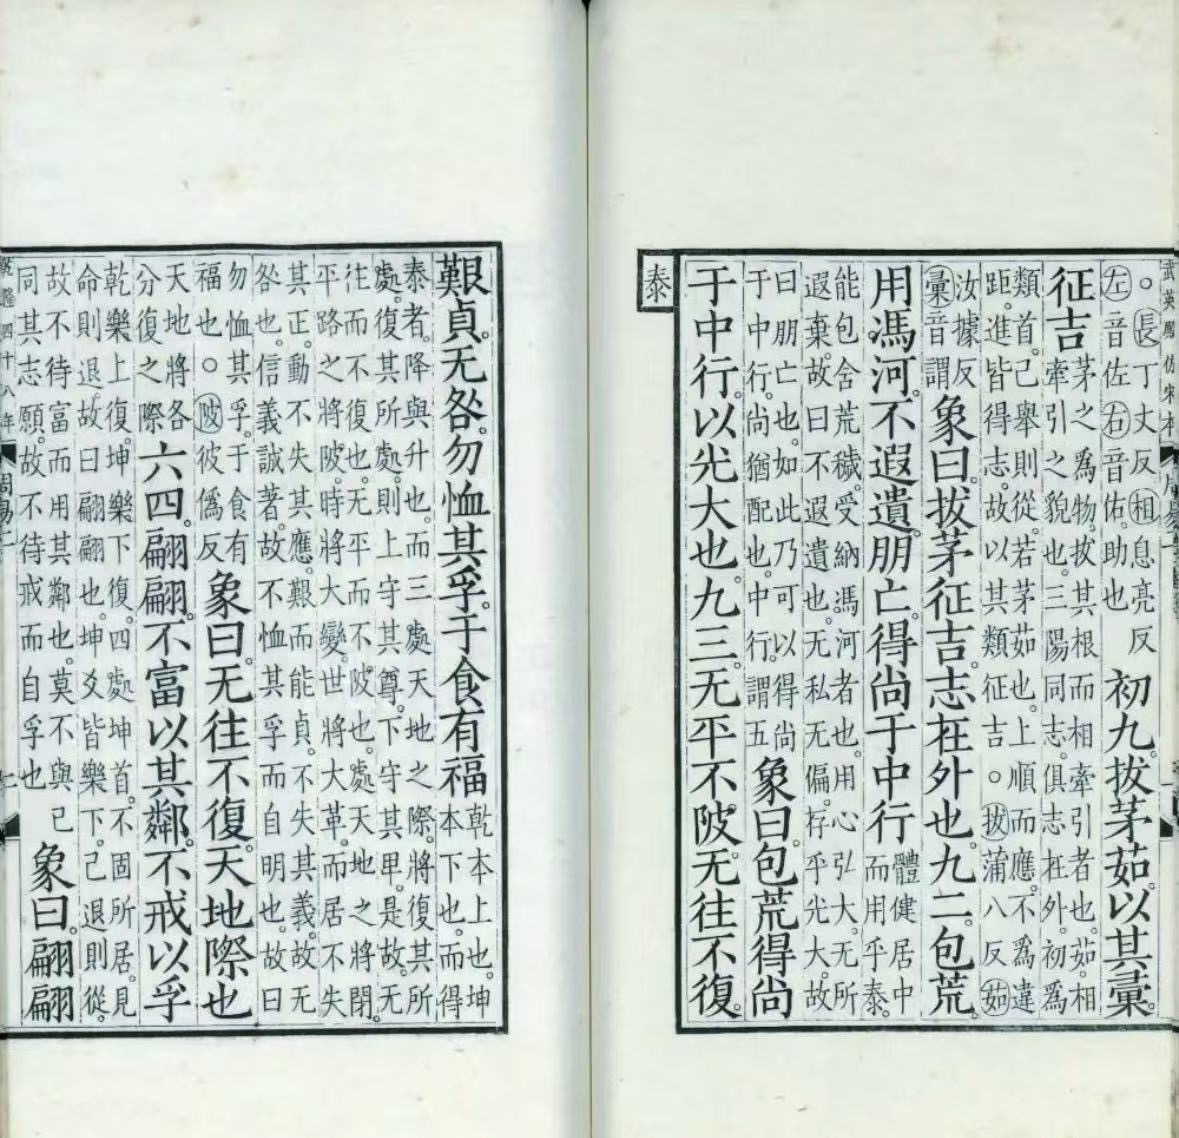 武英殿仿宋本
○長丁丈反相息亮反
左音佐右音佑。助也
初九。拔茅茹。以其彙。
征吉
茅之爲物。拔其根而相牽引者也。茹。相
牽引之貌也。三陽同志。俱志在外。初爲
類首。己舉則從。若茅茹也。上順而應。不爲違
距。進皆得志。故以其類征吉。○拔蒲八反茹
汝據反
彙音謂
象曰。拔茅征吉。志在外也。九二。包荒。
用馮河。不遐遺。朋亡。得尚于中行
體健居中
而用乎泰。
能包含荒穢。受納馮河者也。用心弘大。无所
遐棄。故曰不遐遺也。无私无偏。存乎光大。故
曰朋亡也。如此乃可以得尚
于中行。尚猶配也。中行。謂五
象曰。包荒得尚
于中行。以光大也。九三。无平不陂。无往不復。
泰
艱貞。无咎。勿恤其孚。于食有福
乾本上也。坤
本下也。而得
泰者。降與升也。而三處天地之際。將復其所
處。復其所處。則上守其尊。下守其卑。是故。无
往而不復也。无平而不陂也。處天地之將閉。
平路之將陂。時將大變。世將大革。而居不失
其正。動不失其應。艱而能貞。不失其義。故无
咎也。信義誠著。故不恤其孚而自明也。故曰
勿恤其孚。于食有
福也。○陂彼僞反
象曰。无往不復。天地際也
天地將各
分復之際
六四。翩翩。不富以其鄰。不戒以孚
乾樂上復。坤樂下復。四處坤首。不固所居。見
命則退。故曰翩翩也。坤爻皆樂下。己退則從。
故不待富而用其鄰也。莫不與己
同其志願。故不待戒而自孚也
象曰。翩翩
乾隆四十八年
周易二